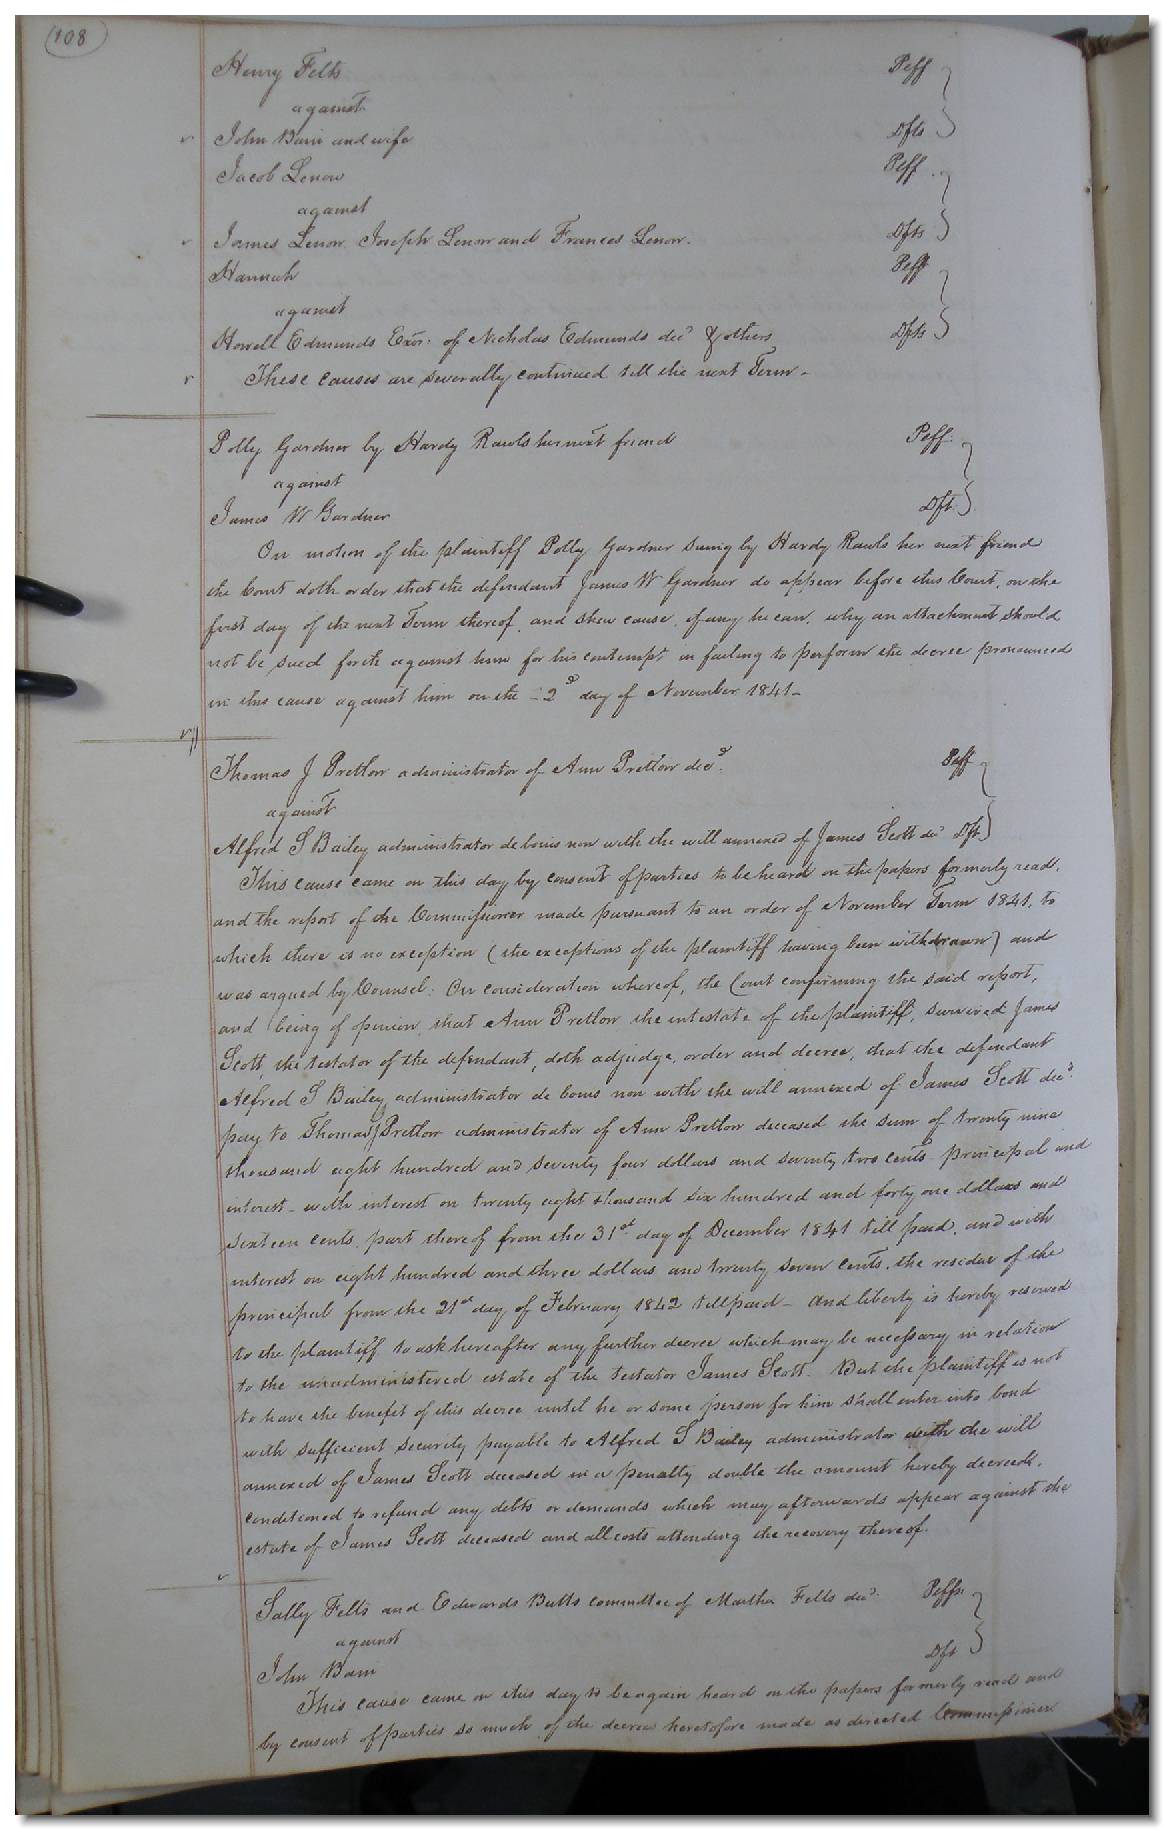 108
Henry Felts Plff
against
John Bain and wife Dfts
Jacob Lenow Plff
against
James Lenow, Joseph Lenow and Frances Lenow. Dfts
Hannah Plff
against
Howell Edmunds Exor. of Nicholas Edmunds decd & others Dfts
These causes are severally continued till the next Term -
Polly Gardner by Hardy Rawls her next friend Plff.
against
James W Gardner Dft.
On motion of the plaintiff Polly Gardner suing by Hardy Rawls her next friend
the Court doth order that the defendant James W Gardner do appear before this Court, on the
first day of the next Term thereof, and shew cause, if any he can, why an attachment should
not be sued forth against him for his contempt in failing to perform the decree pronounced
in this cause against him on the 2d day of November 1841 -
Thomas J Pretlow administrator of Ann Pretlow decd. Plff
against
Alfred S Bailey administrator de bonis non with the will annexed of James Scott decd Dft
This cause came on this day by consent of parties to be heard on the papers formerly read,
and the report of the Commissioner made pursuant to an order of November Term 1841, to
which there is no exception (the exceptions of the plaintiff having been withdrawn) and
was argued by Counsel: On consideration whereof, the Court confirming the said report,
and being of opinion that Ann Pretlow the intestate of the plaintiff, survived James
Scott, the testator of the defendant, doth adjudge, order and decree, that the defendant
Alfred S Bailey administrator de bonis non with the will annexed of James Scott decd.
pay to Thomas J Pretlow administrator of Ann Pretlow deceased the sum of twenty nine
thousand eight hundred and seventy four dollars and seventy two cents principal and
interest - with interest on twenty eight thousand six hundred and forty one dollars and
sixteen cents, part thereof from the 31st day of December 1841 till paid, and with
interest on eight hundred and three dollars and twenty seven cents, the residue of the
principal from the 21st day of February 1842 till paid - And liberty is hereby reserved
to the plaintiff to ask hereafter any further decree which may be necessary in relation
to the unadministered estate of the testator James Scott. But the plaintiff is not
to have the benefit of this decree until he or some person for him shall enter into bond
with sufficient security payable to Alfred S Bailey administrator with the will
annexed of James Scott deceased in a penalty double the amount hereby decreed,
conditioned to refund any debts or demands which may afterwards appear against the
estate of James Scott deceased and all costs attending the recovery thereof.
Sally Felts and Edwards Butts committee of Martha Felts decd. Plffs.
against
John Bain Dft
This cause came on this day to be again heard on the papers formerly read and
by consent of parties so much of the decree heretofore made as directed Commissioner